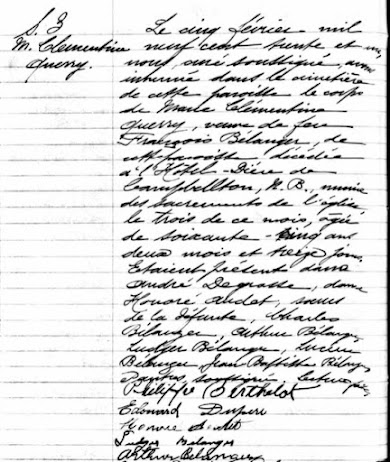 S. 3
M. Clementine
Querry.
Le cinq février mil
neuf cent trente et un,
nous, curé soussigné, avons
inhumé dans le cimetière
de cette paroisse le corps
de Marie Clémentine
Querry, veuve de feu
François Bélanger, de
cette paroisse, décédée
à l'Hôtel-Dieu de
Campbellton, N. B., munie
des Sacrements de l'église
le trois de ce mois, âgée
de soixante-cinq ans
deux mois et treize jours.
Etaient présents dame
André Degrasse, dame
Honoré Audet, soeurs
de la défunte, Charles
Bélanger, Arthur Bélanger,
Ludger Bélanger, Lucien
Bélanger, Jean Baptiste Bélanger
soussignés. Lecture
Philippe Bertholot
Edouard
Honoré Audet
Ludger Belanger
Arthur Belanger